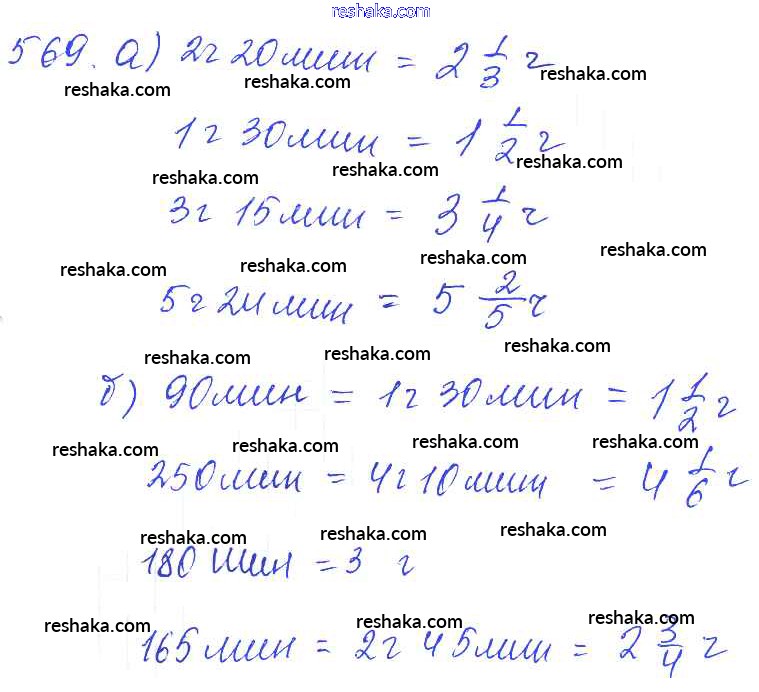 reshaka.com
569. а) 2ч 20мин = 2 1/3 ч
reshaka.com reshaka.com reshaka.com
1ч 30мин = 1 1/2 ч
reshaka.com reshaka.com reshaka.com
3ч 15мин = 3 1/4 ч
reshaka.com reshaka.com reshaka.com reshaka.com
5ч 24мин = 5 2/5 ч
reshaka.com reshaka.com reshaka.com
б) 90мин = 1ч 30мин = 1 1/2 ч
reshaka.com reshaka.com reshaka.com reshaka.com
250мин = 4ч 10мин = 4 1/6 ч
reshaka.com reshaka.com reshaka.com
180 мин = 3 ч
reshaka.com reshaka.com reshaka.com reshaka.com
165мин = 2ч 45мин = 2 3/4 ч